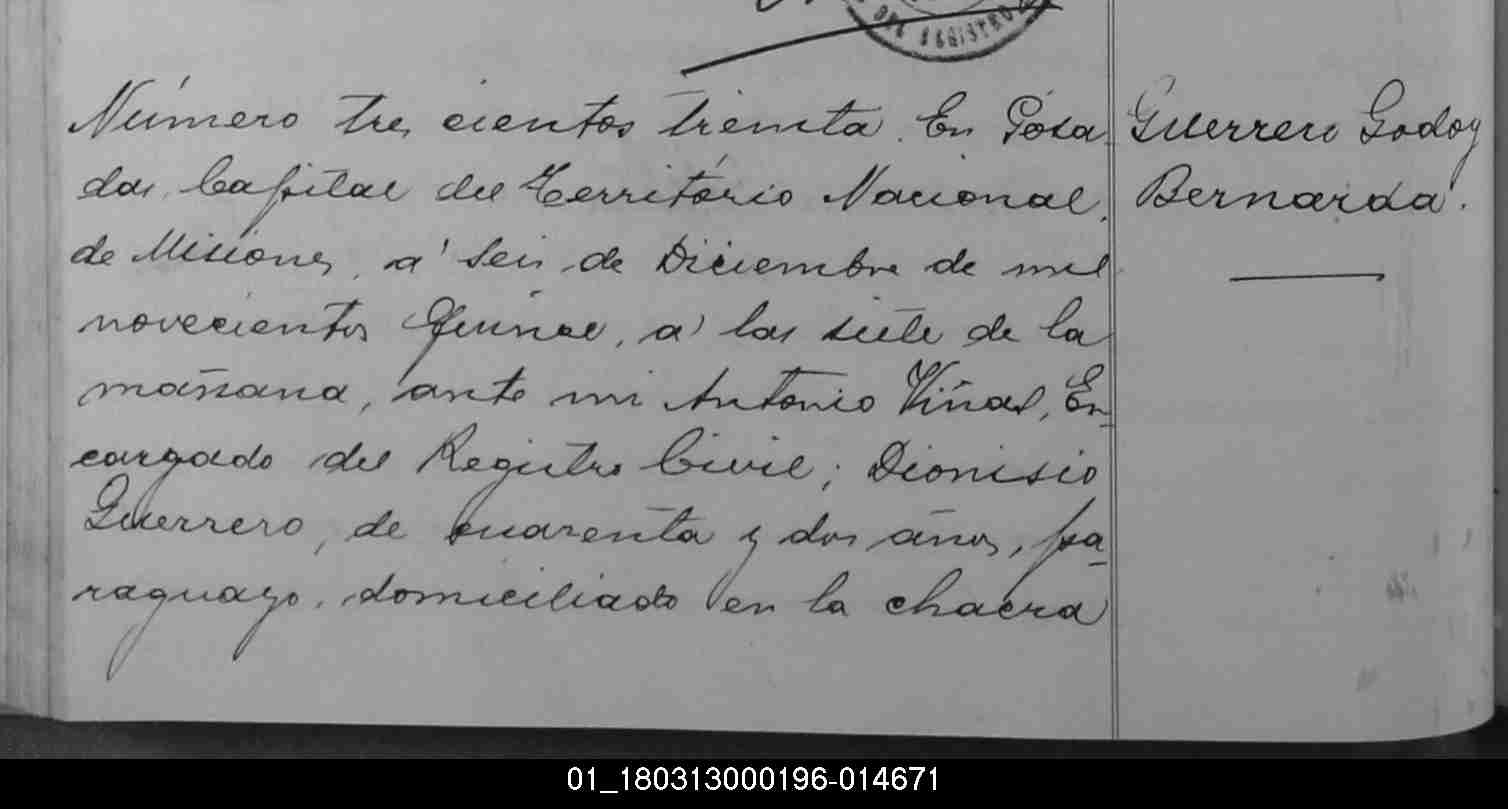 DEL REGISTRO
Número tres cientos treinta. En Posa
das, Capital del Território Nacional,
de Misiones, á seis de Diciembre de mil
novecientos Quince, á las siete de la
mañana, ante mi Antonio Viñas, En-
cargado del Registro Civil; Dionisio
Guerrero, de cuarenta y dos años, pa-
raguayo, domiciliado en la chacra
Guerrero Godoy
Bernarda.
01_180313000196-014671